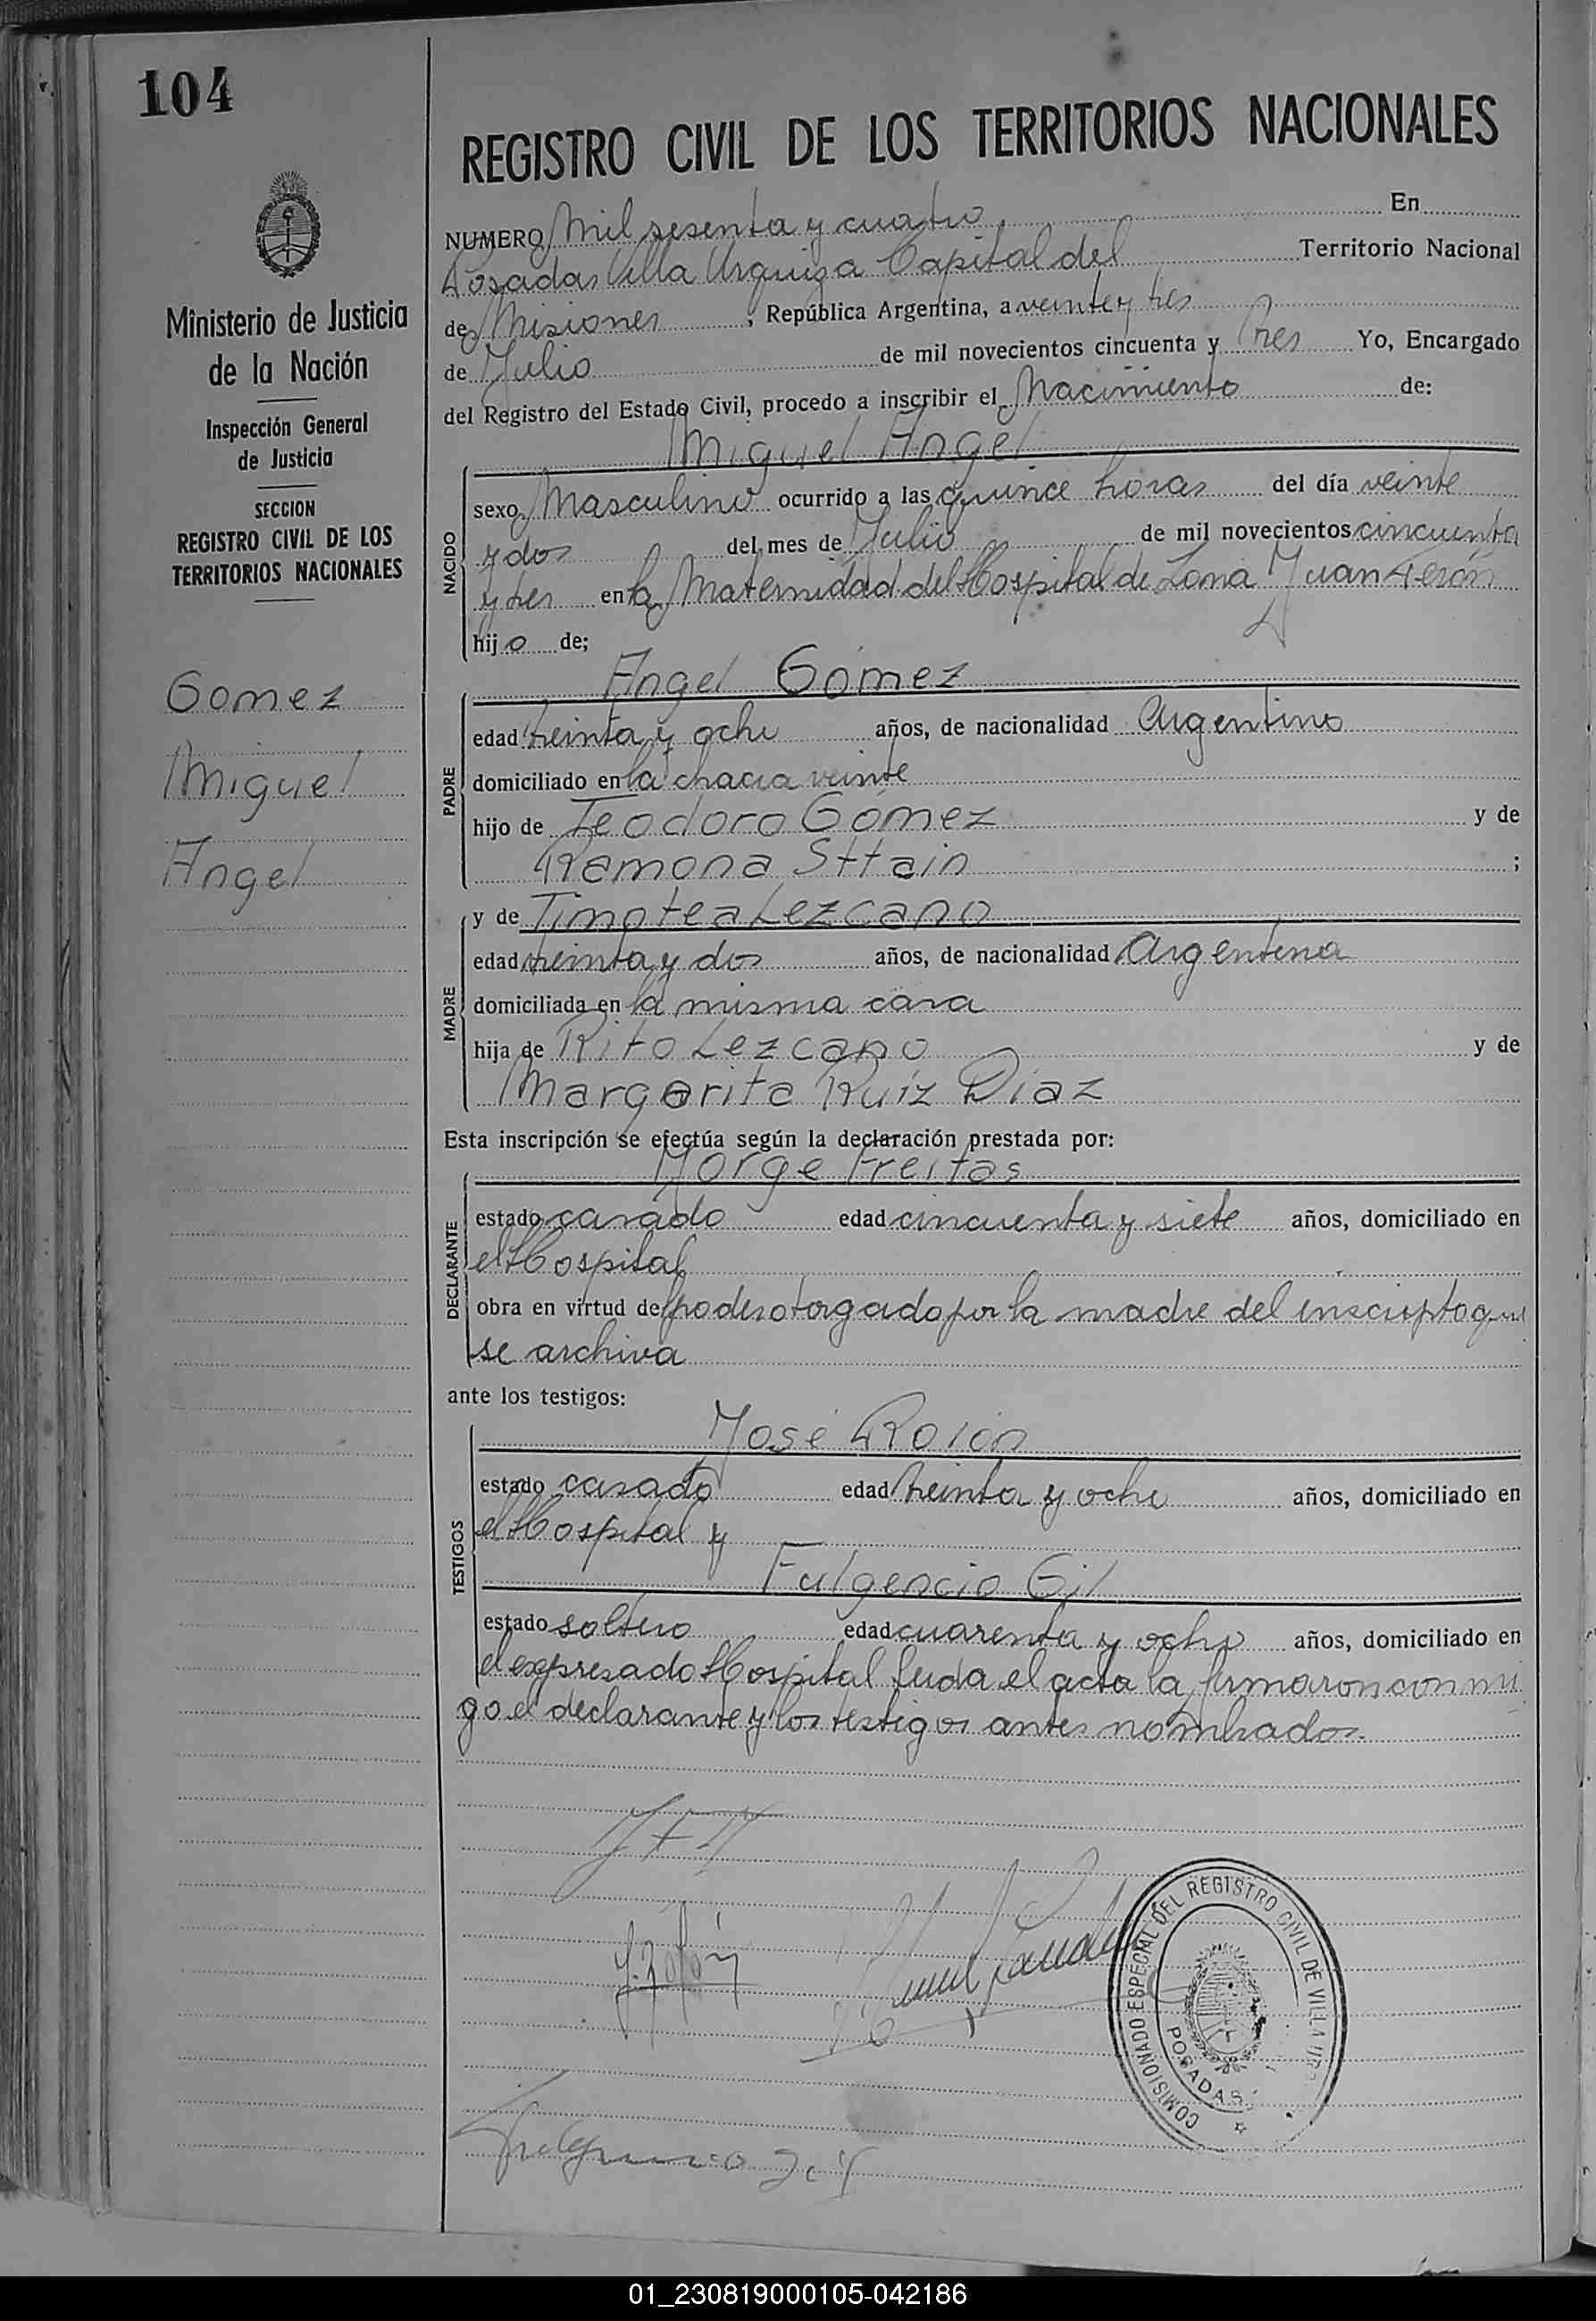 104
Ministerio de Justicia
de la Nación
Inspección General
de Justicia
SECCION
REGISTRO CIVIL DE LOS
TERRITORIOS NACIONALES
Gomez
Miguel
Angel
REGISTRO CIVIL DE LOS TERRITORIOS NACIONALES
NUMERO Mil sesenta y cuatro En
Posadas Villa Urquiza Capital del Territorio Nacional
de Misiones, República Argentina, a veinte y tres
de Julio de mil novecientos cincuenta y tres Yo, Encargado
del Registro del Estado Civil, procedo a inscribir el Nacimiento de:
Miguel Angel
NACIDO
sexo Masculino ocurrido a las quince horas del día veinte
y dos del mes de Julio de mil novecientos cincuenta
y tres en la Maternidad del Hospital de Zona Juan Perón
hijo de;
Angel Gómez
PADRE
edad treinta y ocho años, de nacionalidad Argentino
domiciliado en la chacra veinte
hijo de Teodoro Gómez y de
Ramona Sttain ;
y de Timotea Lezcano
MADRE
edad treinta y dos años, de nacionalidad Argentina
domiciliada en la misma casa
hija de Rito Lezcano y de
Margarita Ruíz Díaz
Esta inscripción se efectúa según la declaración prestada por:
Jorge Freitas
DECLARANTE
estado casado edad cincuenta y siete años, domiciliado en
el Hospital
obra en virtud del poder otorgado por la madre del inscripto que
se archiva
ante los testigos:
José Rolón
TESTIGOS
estado casado edad treinta y ocho años, domiciliado en
el Hospital y
Fulgencio Gil
estado soltero edad cuarenta y ocho años, domiciliado en
el expresado Hospital leida el acta la firmaron conmi
go el declarante y los testigos antes nombrados.
J. Rolón
COMISIONADO ESPECIAL DEL REGISTRO CIVIL DE VILLA
POSADAS
Fulgencio Gil
01_230819000105-042186